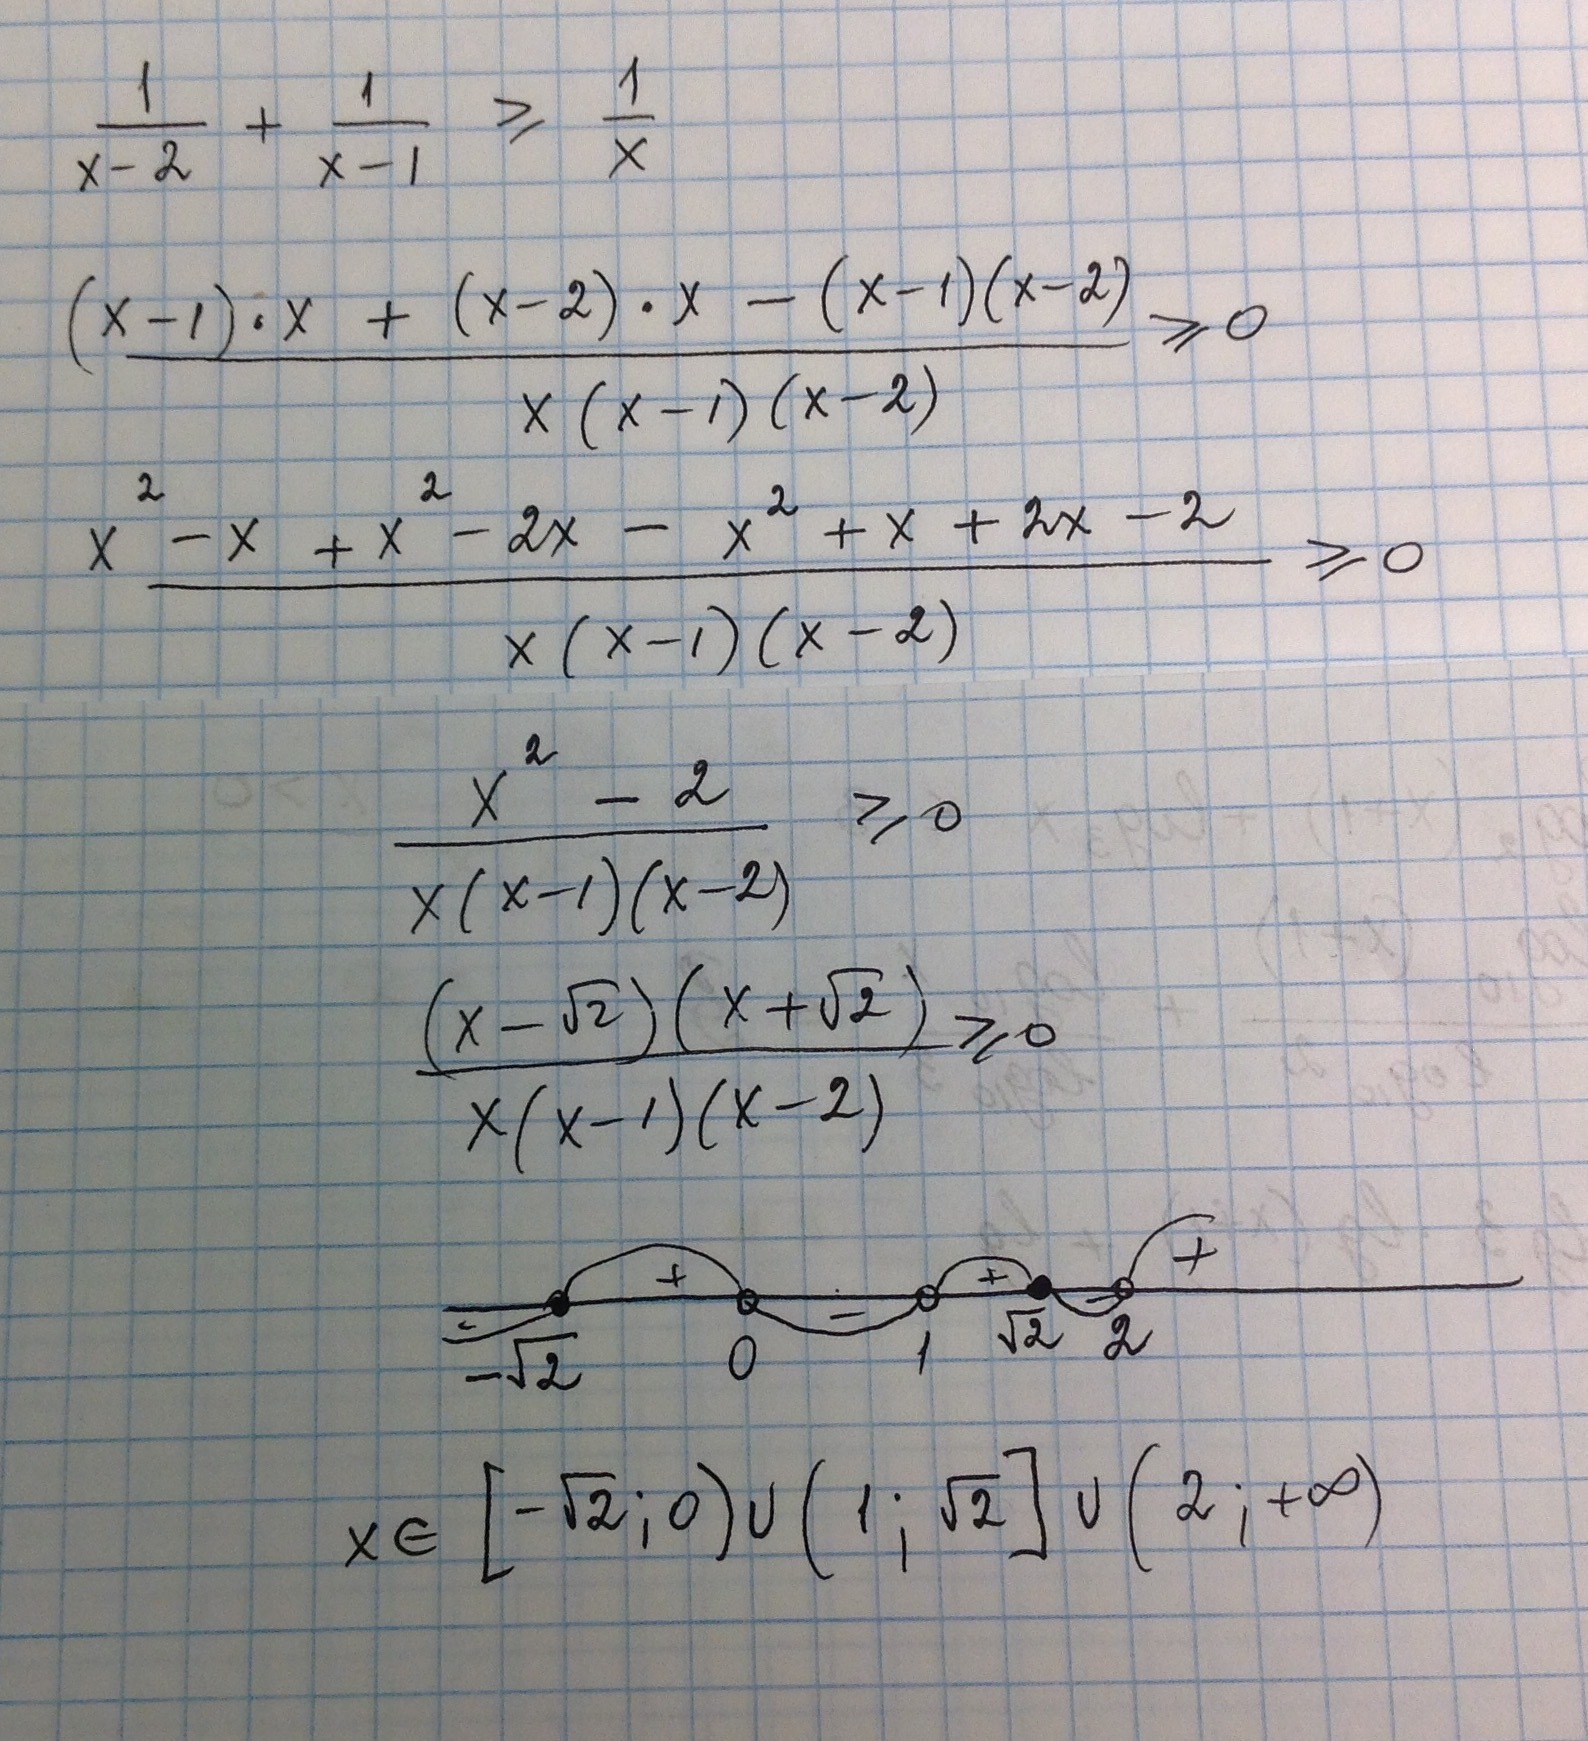 1/(x-2) + 1/(x-1) ⩾ 1/x
((x-1)·x + (x-2)·x - (x-1)(x-2))/(x(x-1)(x-2)) ⩾ 0
(x² - x + x² - 2x - x² + x + 2x - 2)/(x(x-1)(x-2)) ⩾ 0
(x² - 2)/(x(x-1)(x-2)) ⩾ 0
((x-√2)(x+√2))/(x(x-1)(x-2)) ⩾ 0
- + - + - +
-√2 0 1 √2 2
x ∈ [-√2; 0) ∪ (1; √2] ∪ (2; +∞)